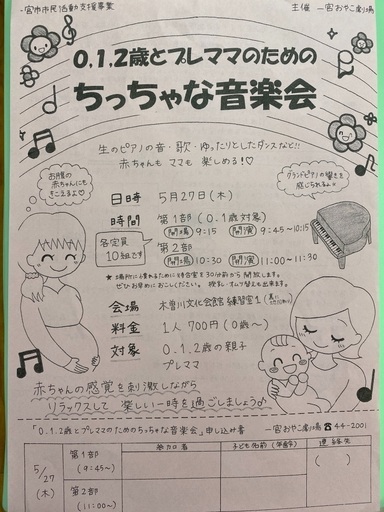 一宮市市民活動支援事業
主催 一宮おやこ劇場
0.1.2歳とプレママのための
ちっちゃな音楽会
生のピアノの音・歌・ゆったりとしたダンスなど!!
赤ちゃんも ママも 楽しめる!♡
お腹の
赤ちゃんにも
きこえるよ♡
グランドピアノの響きを
感じられるよ♡
日時 5月27日(木)
時間 第1部(0.1歳対象)
開場 9:15 開演 9:45~10:15
各定員
10組です
第2部
開場 10:30 開演 11:00~11:30
*場所に慣れるために
30分前から開放します。
ぜひお早めにおこしください。
会場 木曽川文化会館 練習室1
料金 1人 700円(0歳~)
対象 0.1.2歳の親子
プレママ
赤ちゃんの感覚を刺激しながら
リラックスして 楽しい一時を過ごしましょう♪
「0.1.2歳とプレママのためのちっちゃな音楽会」申し込み書 一宮おやこ劇場 ☎44-2001
参加者 子ども名前(年齢) 連絡先
5/27
(木)
第1部
(9:45~)
( )
第2部
(11:00~)